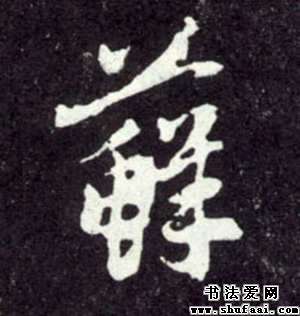 蘚
书法爱网
www.shufaai.com